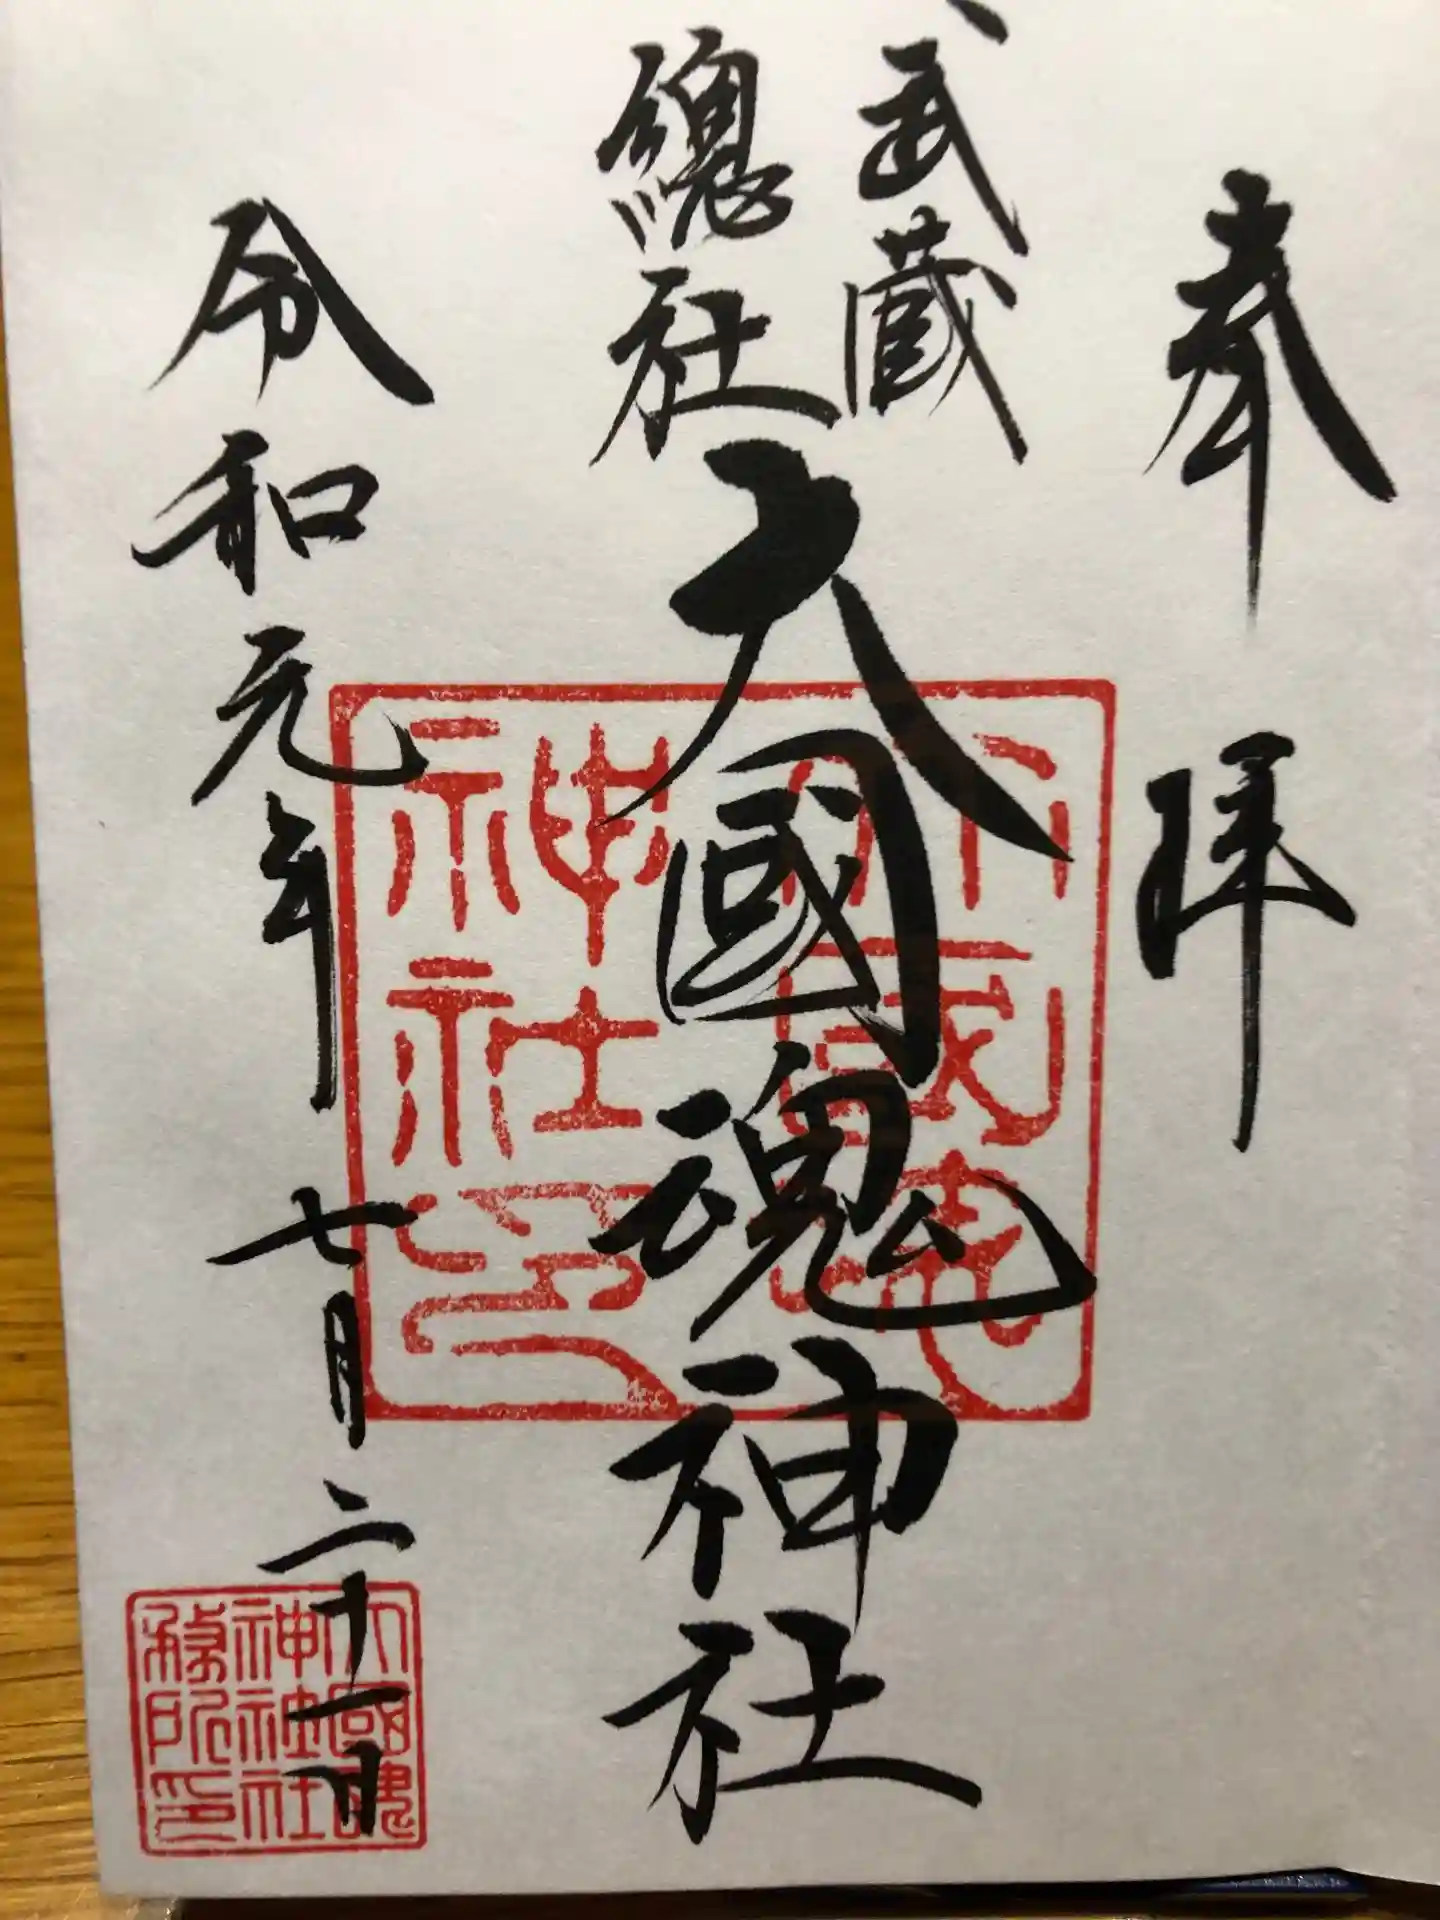 奉拝
武蔵
總社
大國魂神社
令和元年七月二十一日
大國魂
神社
神社社
務所印